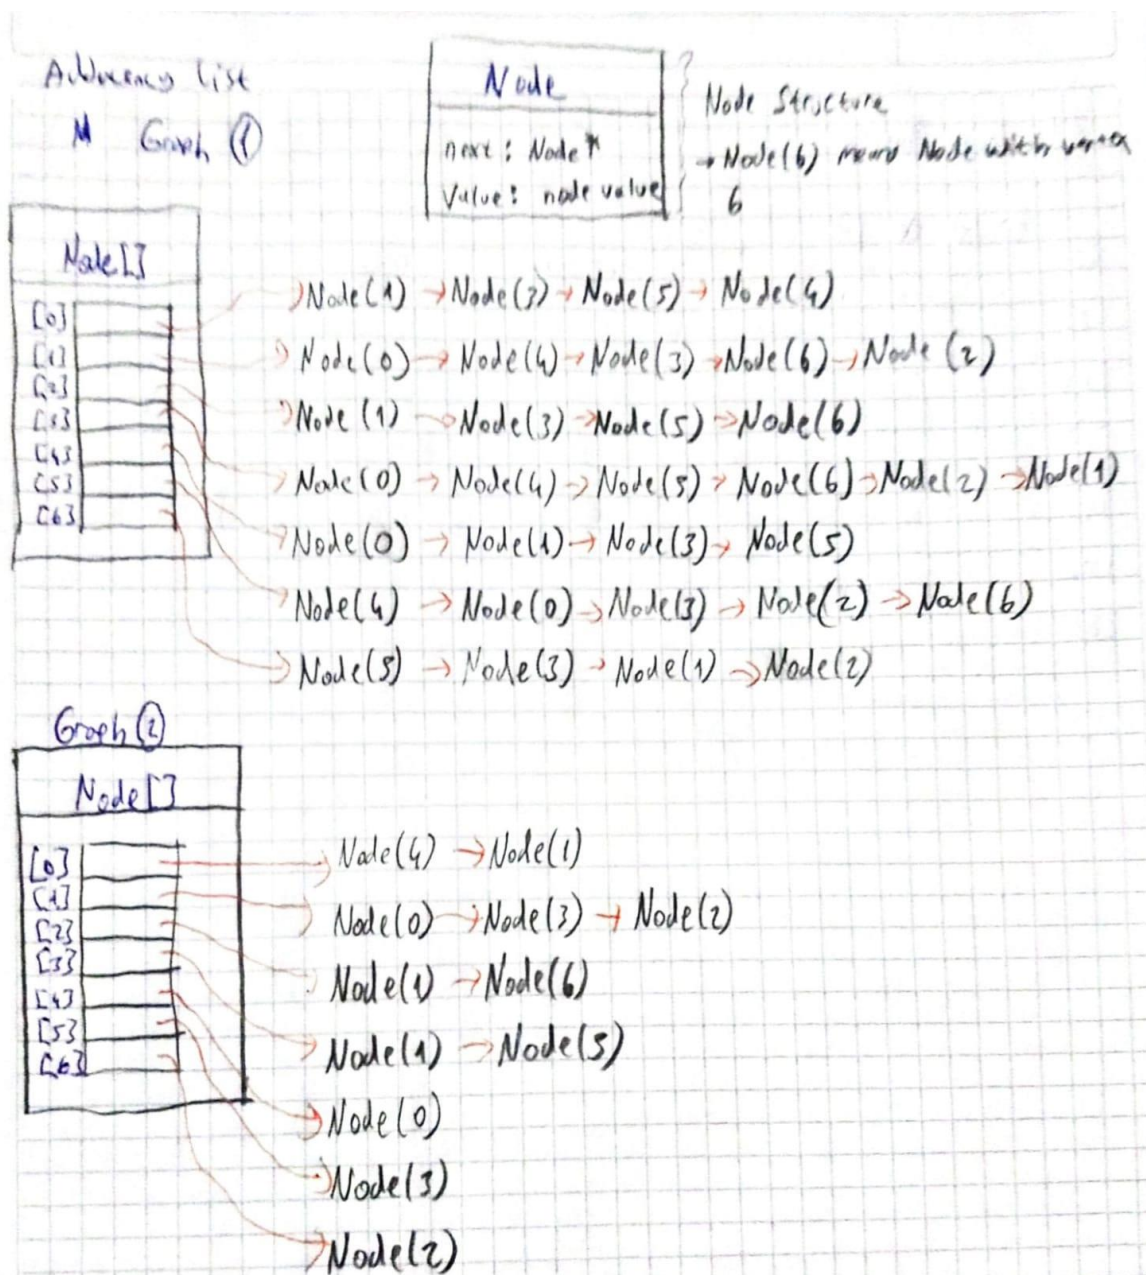 Adjacency list
Graph ①
Node
next : Node*
Value : node value
Node Structure
→ Node(6) means Node with vertex
6
Node[]
[0] → Node(1) → Node(3) → Node(5) → Node(4)
[1] → Node(0) → Node(4) → Node(3) → Node(6) → Node(2)
[2] → Node(1) → Node(3) → Node(5) → Node(6)
[3] → Node(0) → Node(4) → Node(5) → Node(6) → Node(2) → Node(1)
[4] → Node(0) → Node(1) → Node(3) → Node(5)
[5] → Node(4) → Node(0) → Node(3) → Node(2) → Node(6)
[6] → Node(5) → Node(3) → Node(1) → Node(2)
Graph ②
Node[]
[0] → Node(4) → Node(1)
[1] → Node(0) → Node(3) → Node(2)
[2] → Node(1) → Node(6)
[3] → Node(1) → Node(5)
[4] → Node(0)
[5] → Node(3)
[6] → Node(2)